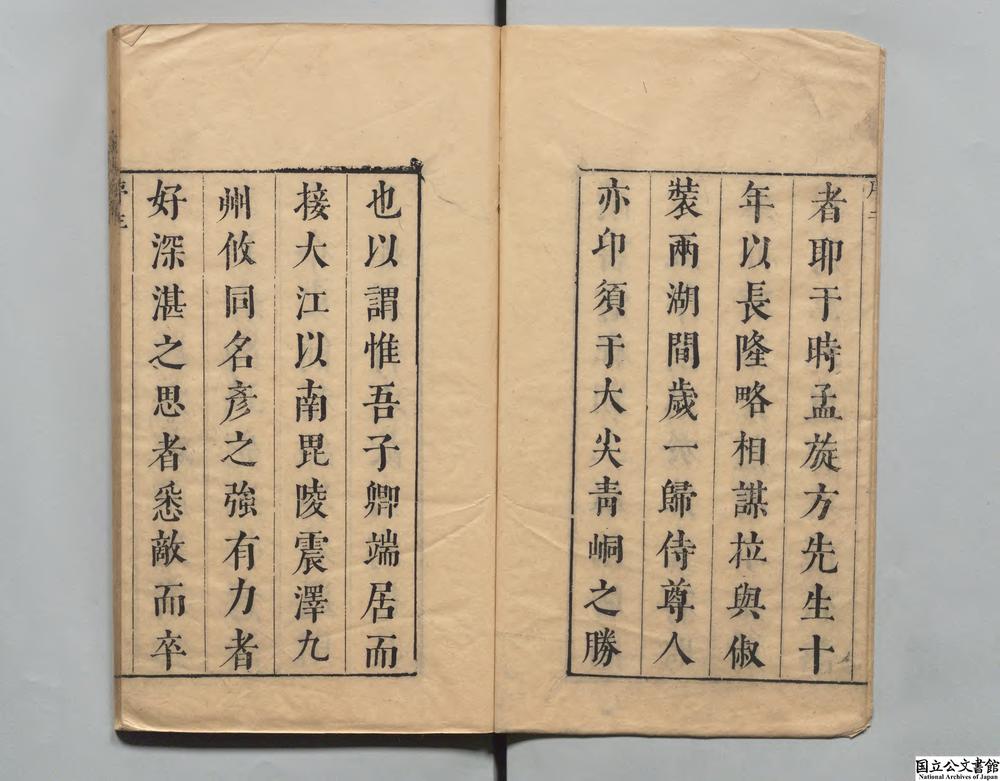 者耶于時孟旋方先生十
年以長隆略相謀拉與俶
裝兩湖間歲一歸侍尊人
亦卬須于大尖青峒之勝
也以謂惟吾子卿端居而
接大江以南毘陵震澤九
州攸同名彥之強有力者
好深湛之思者悉敵而卒
国立公文書館
National Archives of Japan